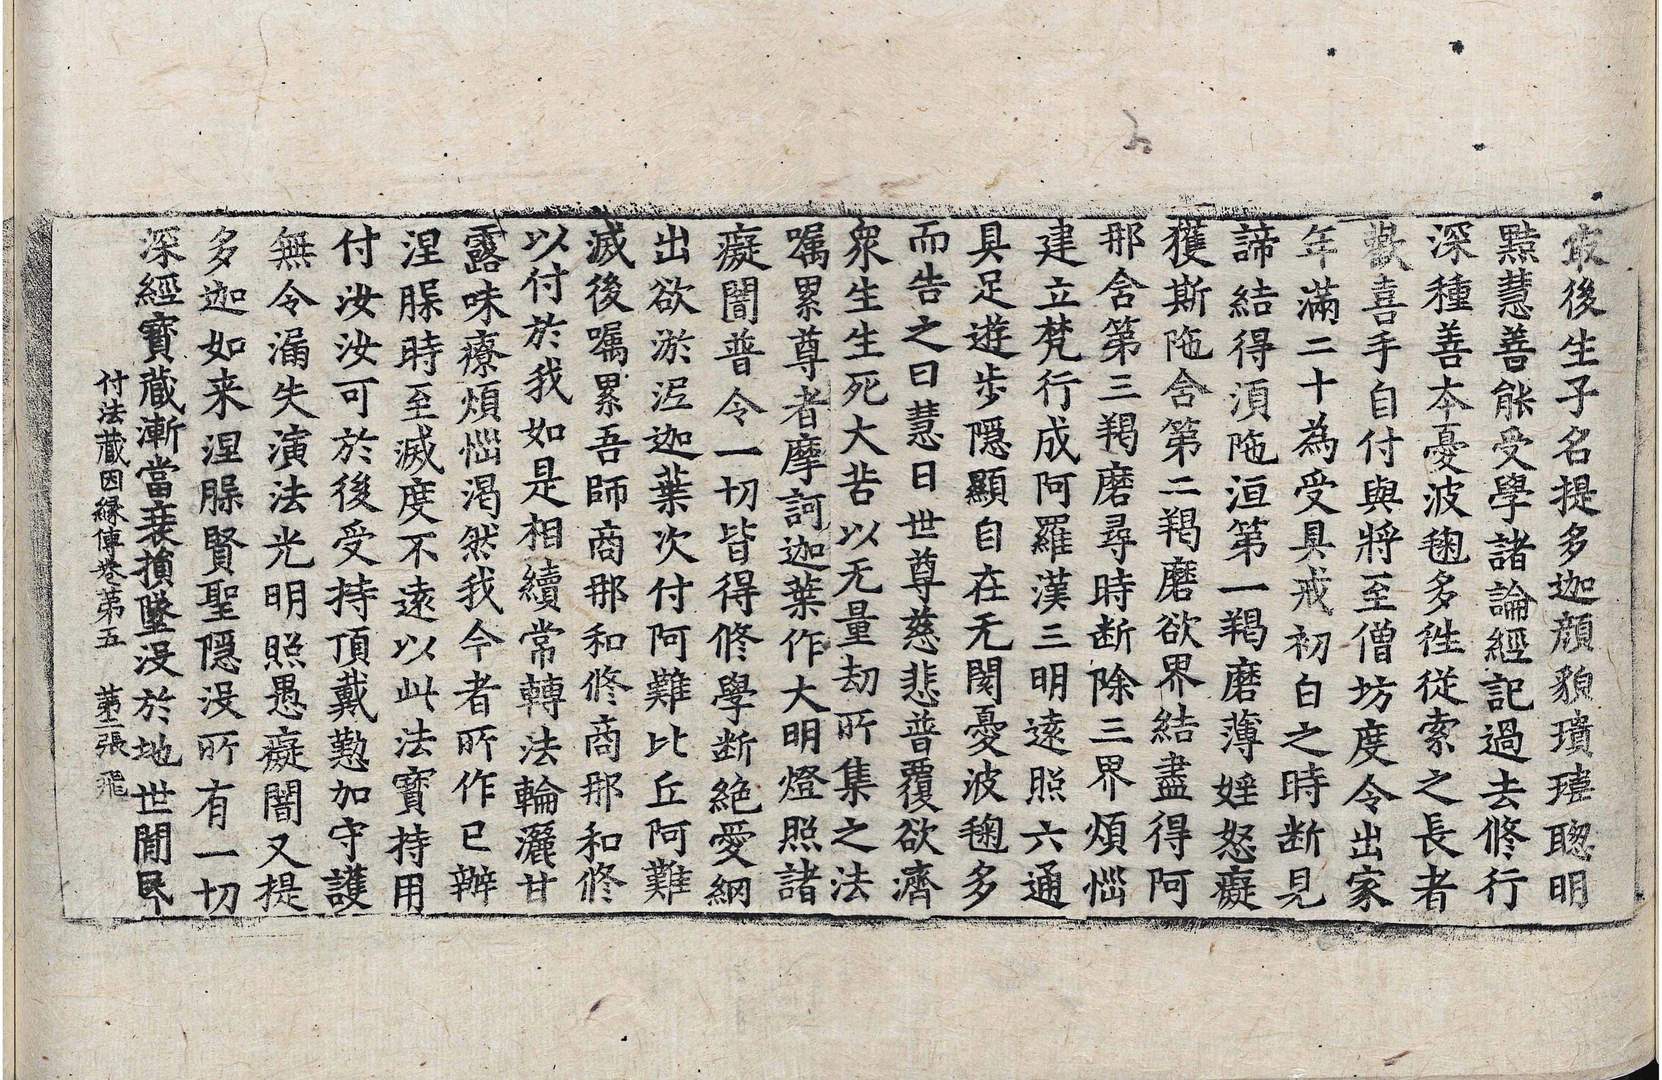 最後生子名提多迦顔貌瓌瑋聦明
黠慧善能受學諸論經記過去修行
深種善本憂波毱多徃従索之長者
歡喜手自付與將至僧坊度令出家
年滿二十為受具戒初白之時断見
諦結得湏陁洹第一羯磨薄婬怒癡
獲斯陁含第二羯磨欲界結盡得阿
那含第三羯磨尋時断除三界煩惱
建立梵行成阿羅漢三明遠照六通
具足遊歩隠顯自在无閡憂波毱多
而告之曰慧日世尊慈悲普覆欲濟
衆生生死大苦以无量劫所集之法
嘱累尊者摩訶迦葉作大明燈照諸
癡闇普令一切皆得修學断絶愛網
出欲淤泥迦葉次付阿難比丘阿難
滅後嘱累吾師商那和修商那和修
以付於我如是相續常轉法輪灑甘
露味療煩惱渇然我今者所作已辦
涅脲時至滅度不遠以此法寶持用
付汝汝可於後受持頂戴懃加守護
無令漏失演法光明照愚癡闇又提
多迦如来涅脲賢聖隠没所有一切
深經寶藏漸當衰損墜没於地世閒民
付法藏因緣傳卷第五　第二張　飛